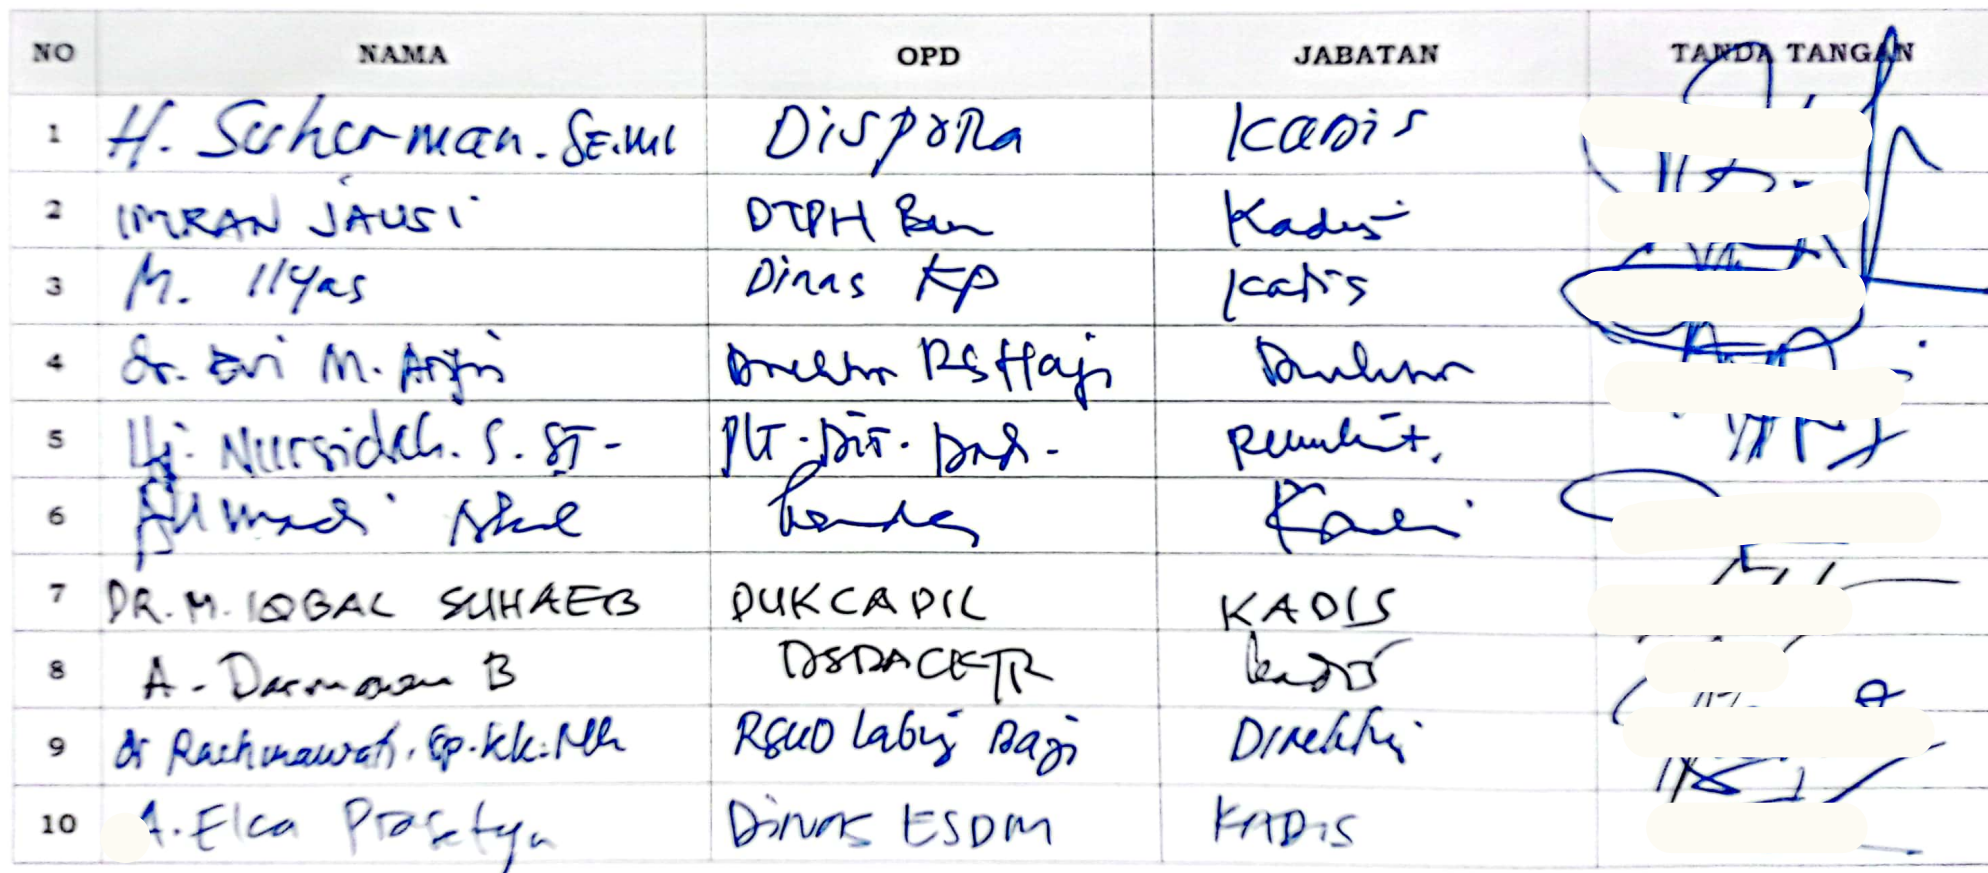 NO NAMA OPD JABATAN TANDA TANGAN
1 H. Suherman. SE. Dispora Kadis
2 IMRAN JAUSI DTPH Bun Kadis
3 M. Ilyas Dinas KP Kadis
4 dr. Evi M. Direktur RS Haji Direktur
5 Hj. Nursidah. S. ST- Plt. Dir.
6
7 DR. M. IQBAL SUHAEB DUKCAPIL KADIS
8 A. Darmawan B DSDACKTR Kadis
9 dr Rachmawati. Sp.KK. RSUD Labuang Baji Direktur
10 A. Elca Prasetya Dinas ESDM KADIS